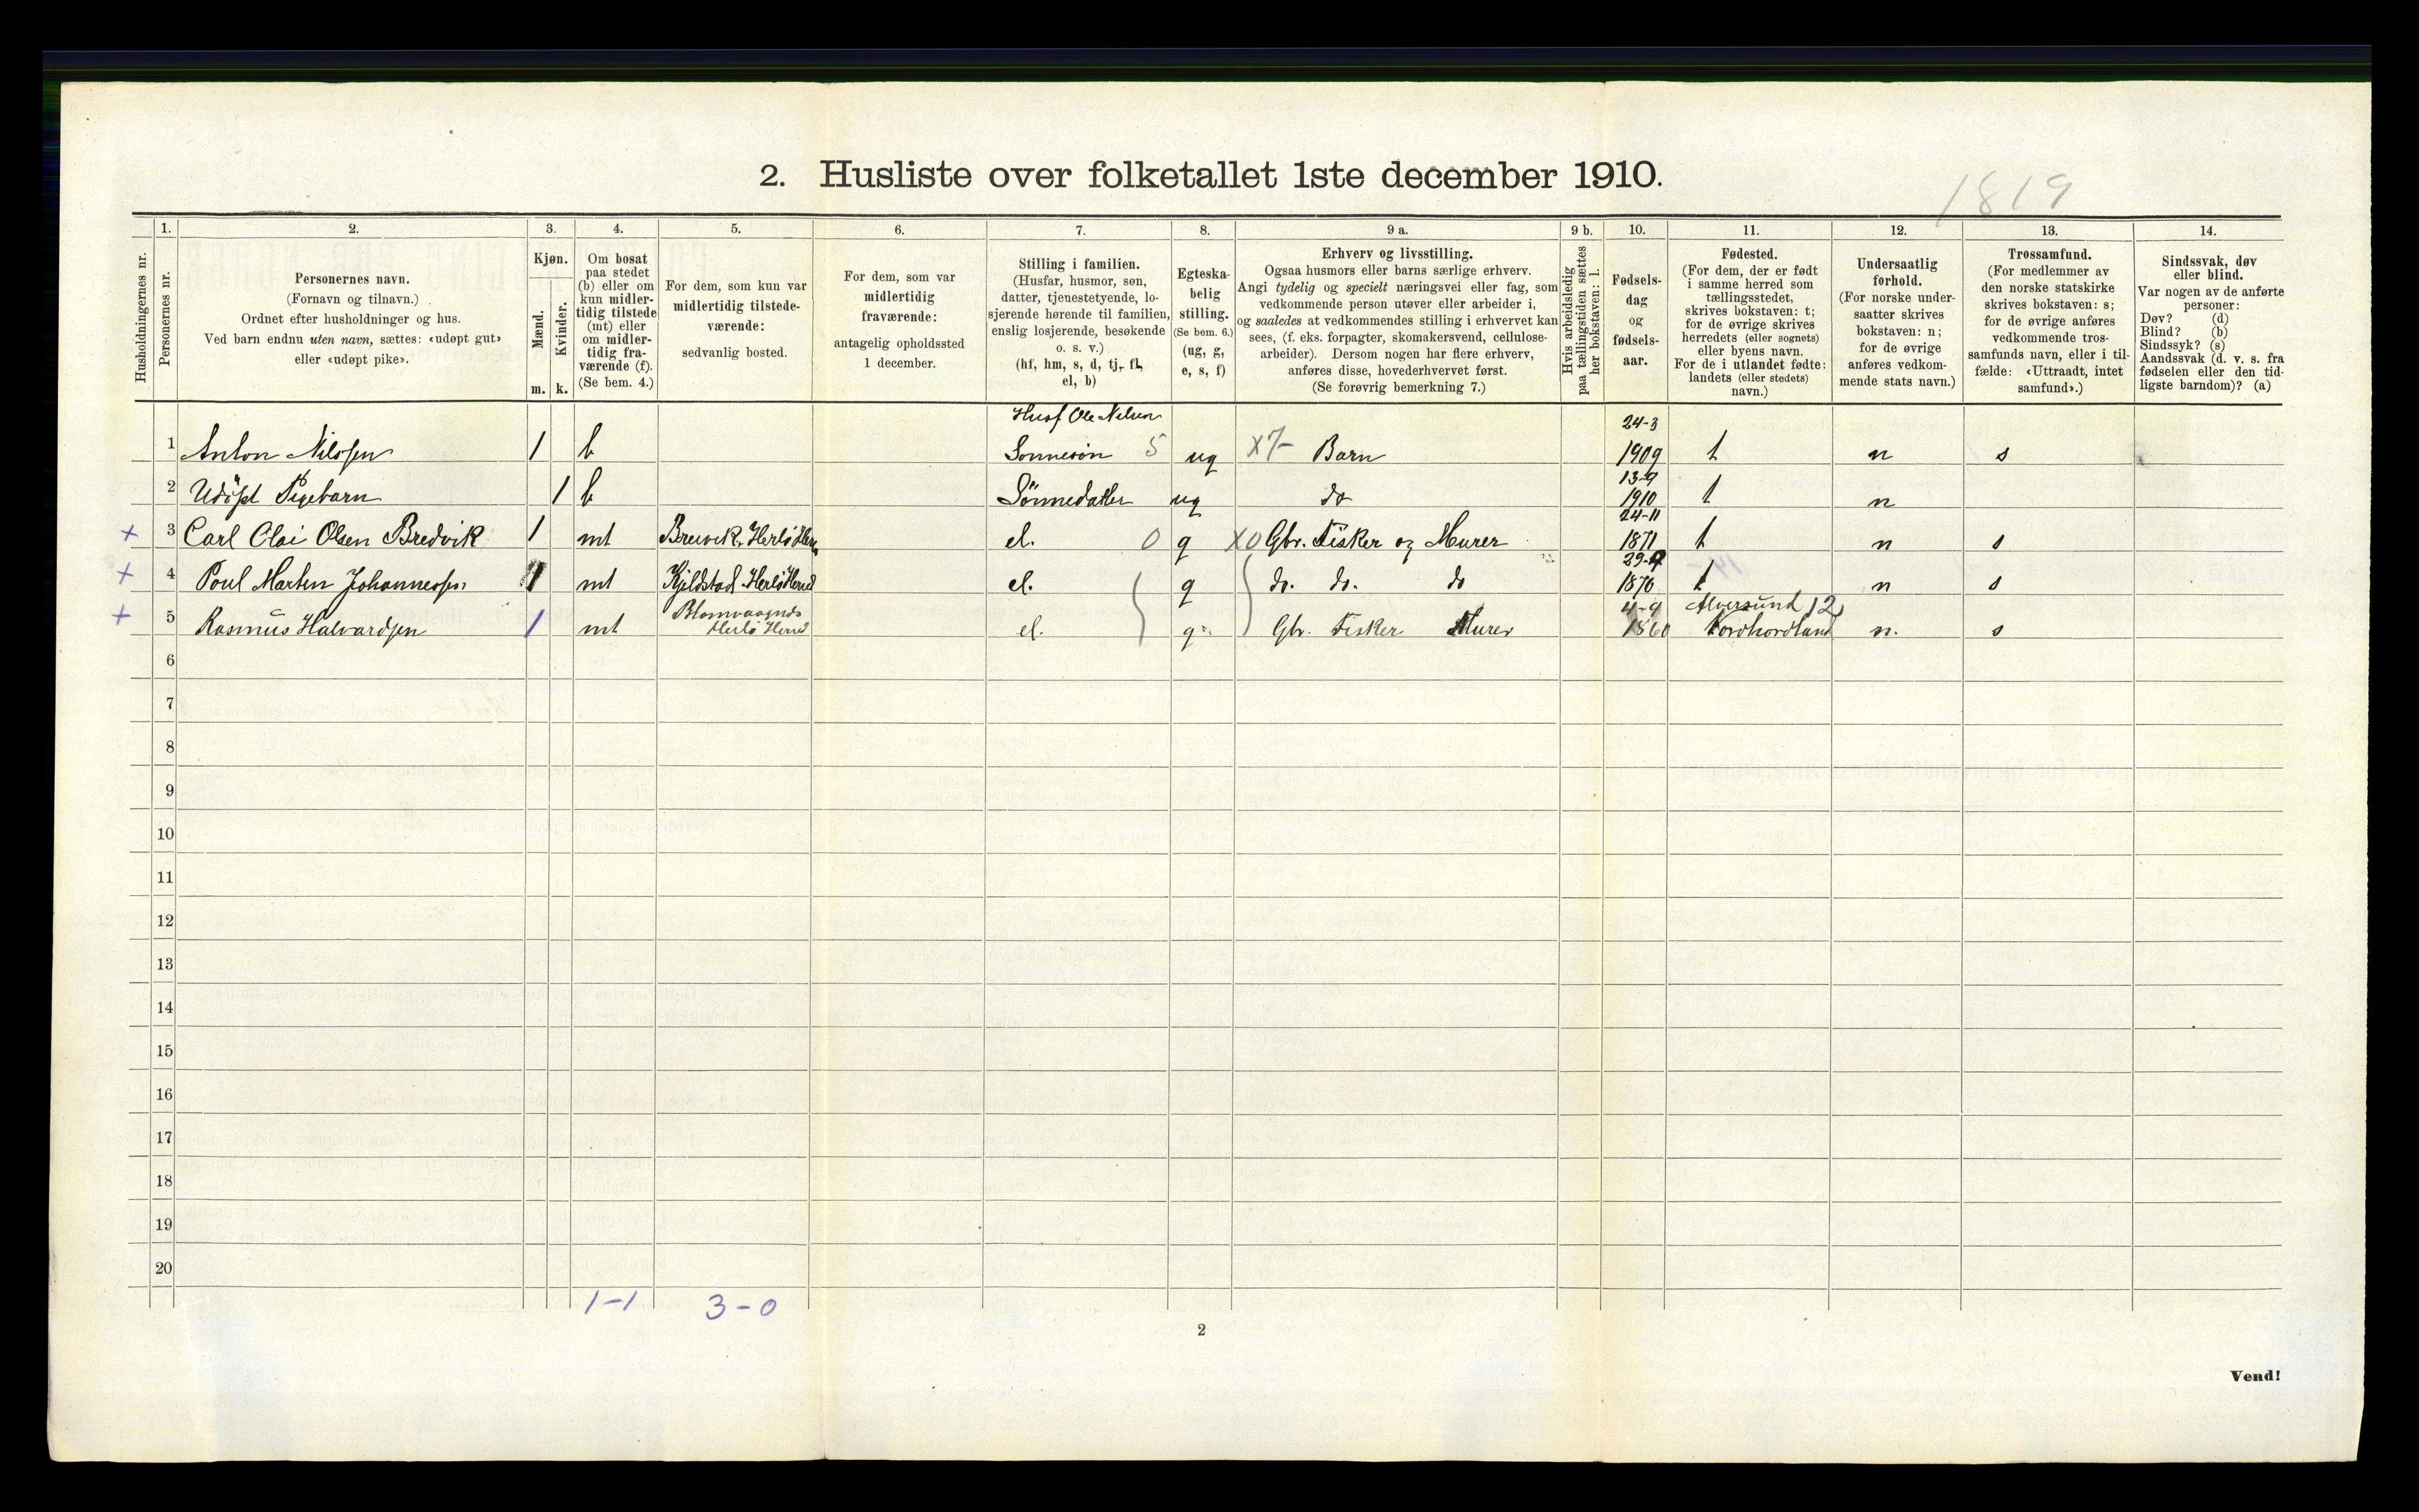 2. Husliste over folketallet 1ste december 1910.
1819
Husholdningernes nr.
1.
Personernes nr.
2.
Personernes navn.
(Fornavn og tilnavn.)
Ordnet efter husholdninger og hus.
Ved barn endnu uten navn, sættes: «udøpt gut»
eller «udøpt pike».
3.
Kjøn.
Mænd.
Kvinder.
m.
k.
4.
Om bosat
paa stedet
(b) eller om
kun midler-
tidig tilstede
(mt) eller
om midler-
tidig fra-
værende (f).
(Se bem. 4.)
5.
For dem, som kun var
midlertidig tilstede-
værende:
sedvanlig bosted.
6.
For dem, som var
midlertidig
fraværende:
antagelig opholdssted
1 december.
7.
Stilling i familien.
(Husfar, husmor, søn,
datter, tjenestetyende, lo-
sjerende hørende til familien,
enslig losjerende, besøkende
o. s. v.)
(hf, hm, s, d, tj, fl,
el, b)
8.
Egteska-
belig
stilling.
(Se bem. 6.)
(ug, g,
e, s, f)
9 a.
Erhverv og livsstilling.
Ogsaa husmors eller barns særlige erhverv.
Angi tydelig og specielt næringsvei eller fag, som
vedkommende person utøver eller arbeider i,
og saaledes at vedkommendes stilling i erhvervet kan
sees, (f. eks. forpagter, skomakersvend, cellulose-
arbeider). Dersom nogen har flere erhverv,
anføres disse, hovederhvervet først.
(Se forøvrig bemerkning 7.)
9 b.
Hvis arbeidsledig
paa tællingstiden sættes
her bokstaven: l.
10.
Fødsels-
dag
og
fødsels-
aar.
11.
Fødested.
(For dem, der er født
i samme herred som
tællingsstedet,
skrives bokstaven: t;
for de øvrige skrives
herredets (eller sognets)
eller byens navn.
For de i utlandet fødte:
landets (eller stedets)
navn.)
12.
Undersaatlig
forhold.
(For norske under-
saatter skrives
bokstaven: n;
for de øvrige
anføres vedkom-
mende stats navn.)
13.
Trossamfund.
(For medlemmer av
den norske statskirke
skrives bokstaven: s;
for de øvrige anføres
vedkommende tros-
samfunds navn, eller i til-
fælde: «Uttraadt, intet
samfund».)
14.
Sindssvak, døv
eller blind.
Var nogen av de anførte
personer:
Døv? (d)
Blind? (b)
Sindssyk? (s)
Aandssvak (d. v. s. fra
fødselen eller den tid-
ligste barndom)? (a)
Husf Ole Nelsen 24-3
1 Anton Nilssen 1 b Sonnesön 5 ug X7- Barn 1909 t n s
13-9
2 Udöpt Pigebarn 1 b Sönnedatter ug do 1910 t n
24-11
+ 3 Carl Olai Olsen Bredvik 1 mt Brevik, Herlö Herr el. 0 g X0 Gbr. Fisker og Murer 1871 t n s
29-9
+ 4 Poul Marten Johannessen 1 mt Kjeldstad Herlö Herred el. g do. do. do 1870 t n s
Blomvaagnds 4-9 Alversund 12
+ 5 Rasmus Halvardsen 1 mt Herlö Herred el. g Gbr. Fisker Murer 1860 Nordhordland n. s
6
7
8
9
10
11
12
13
14
15
16
17
18
19
20
1-1 3-0
2
Vend!